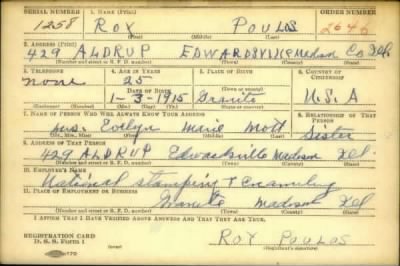 SERIAL NUMBER 1. NAME (Print) ORDER NUMBER
1258 ROY POULOS 2640
(First) (Middle) (Last)
2. ADDRESS (Print)
429 ALDRUP EDWARDSVILLE Madison Co Ill.
(Number and street or R. F. D. number) (Town) (County) (State)
3. TELEPHONE 4. AGE IN YEARS 5. PLACE OF BIRTH 6. COUNTRY OF CITIZENSHIP
none 25
DATE OF BIRTH Granite U.S.A
1-3-1915
(Exchange) (Number) (Mo.) (Day) (Yr.) (State or country)
7. NAME OF PERSON WHO WILL ALWAYS KNOW YOUR ADDRESS 8. RELATIONSHIP OF THAT PERSON
Mrs. Evelyn Marie Mott Sister
(Mr., Mrs., Miss) (First) (Middle) (Last)
9. ADDRESS OF THAT PERSON
429 ALDRUP Edwardsville Madison Ill
(Number and street or R. F. D. number) (Town) (County) (State)
10. EMPLOYER'S NAME
National Stamping & Enameling
11. PLACE OF EMPLOYMENT OR BUSINESS
Granite Madison Ill
(Number and street or R. F. D. number) (Town) (County) (State)
I AFFIRM THAT I HAVE VERIFIED ABOVE ANSWERS AND THAT THEY ARE TRUE.
REGISTRATION CARD
D. S. S. Form 1 ROY POULOS
(Registrant's signature)